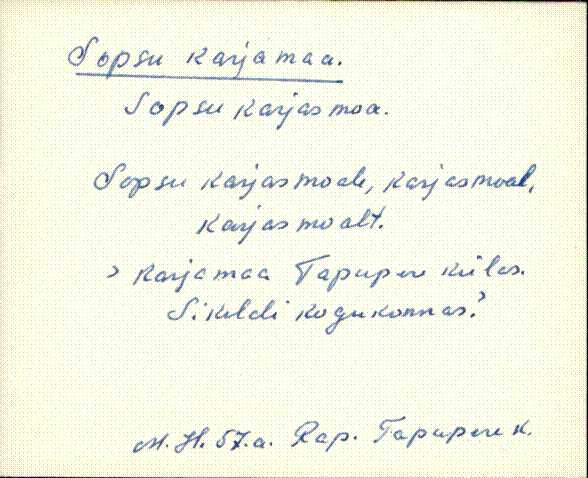 Sopsu karjamaa.
Sopsu karjasmoa.
Sopsu karjasmoale, karjasmoal,
karjasmoalt.
> karjamaa Tapupere külas.
Sikeldi kogukonnas.?
M. H. 57.a. Rap. Tapupere k.